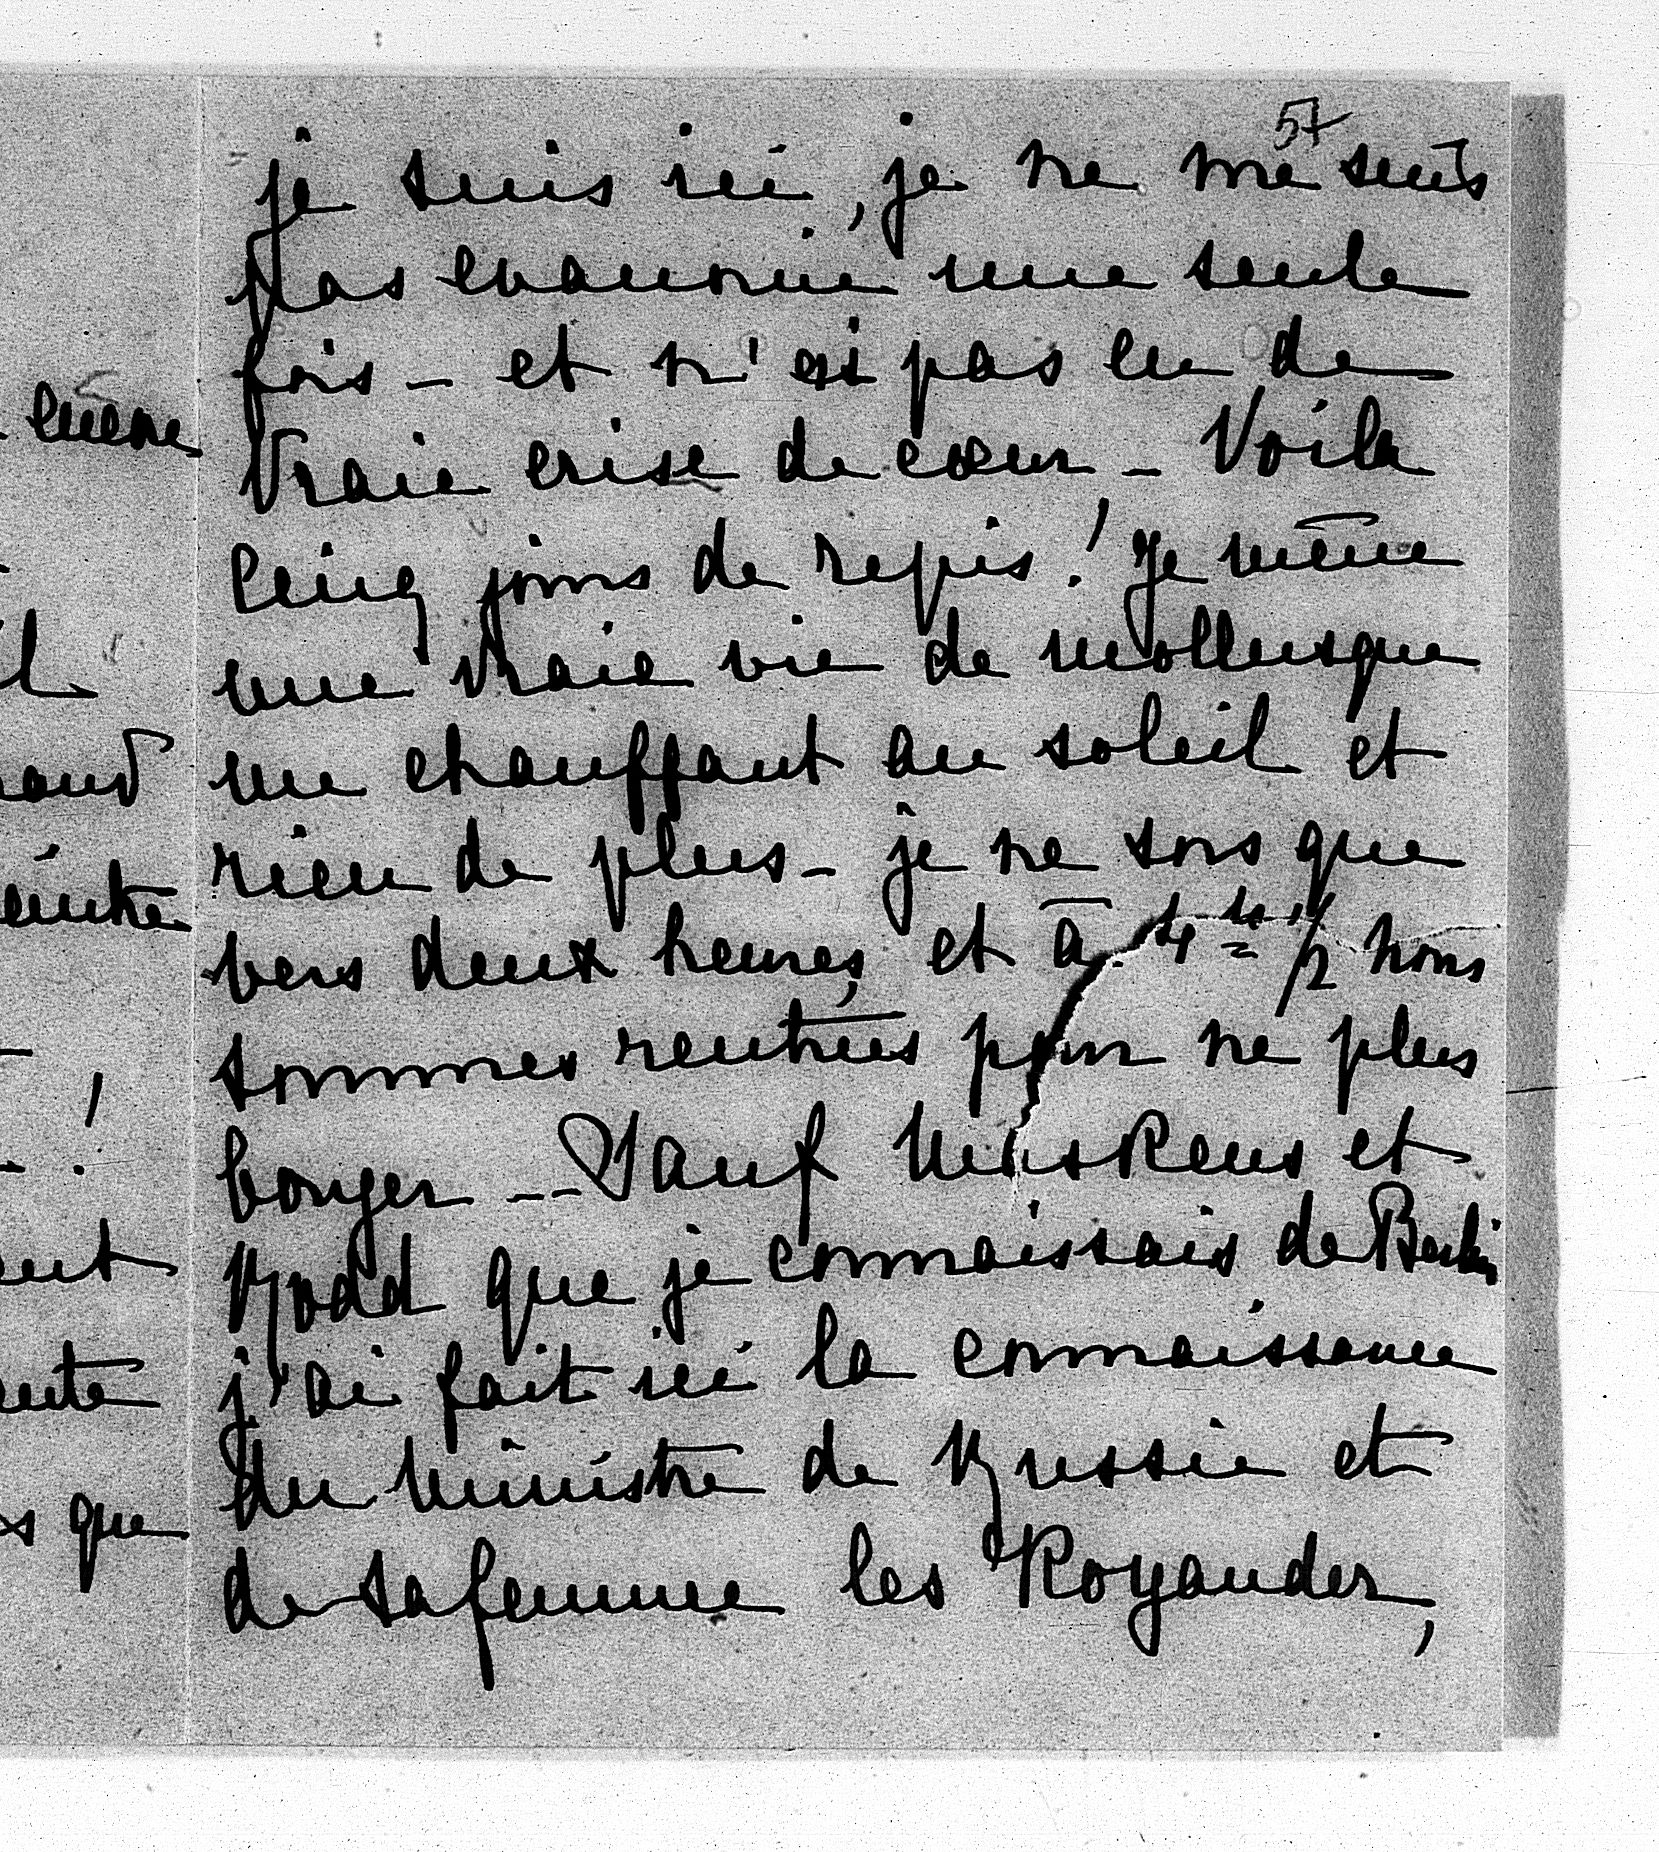 57
je suis ici, je ne me suis
pas évanouie une seule
fois _ et n'ai pas eu de
vraie crise de cœur _ Voila
cinq jours de repos! Je mène
une vraie vie de mollusque
me chauffant au soleil et
rien de plus _ je ne sors que
vers deux heures, et à 4 h 1/2 nous
sommes rentrées pour ne plus
bouger _ _ Sauf et
Rodd que je connaissais de Berlin
j'ai fait ici la connaissance
du Ministre de Russie et
de sa femme les
encore
que